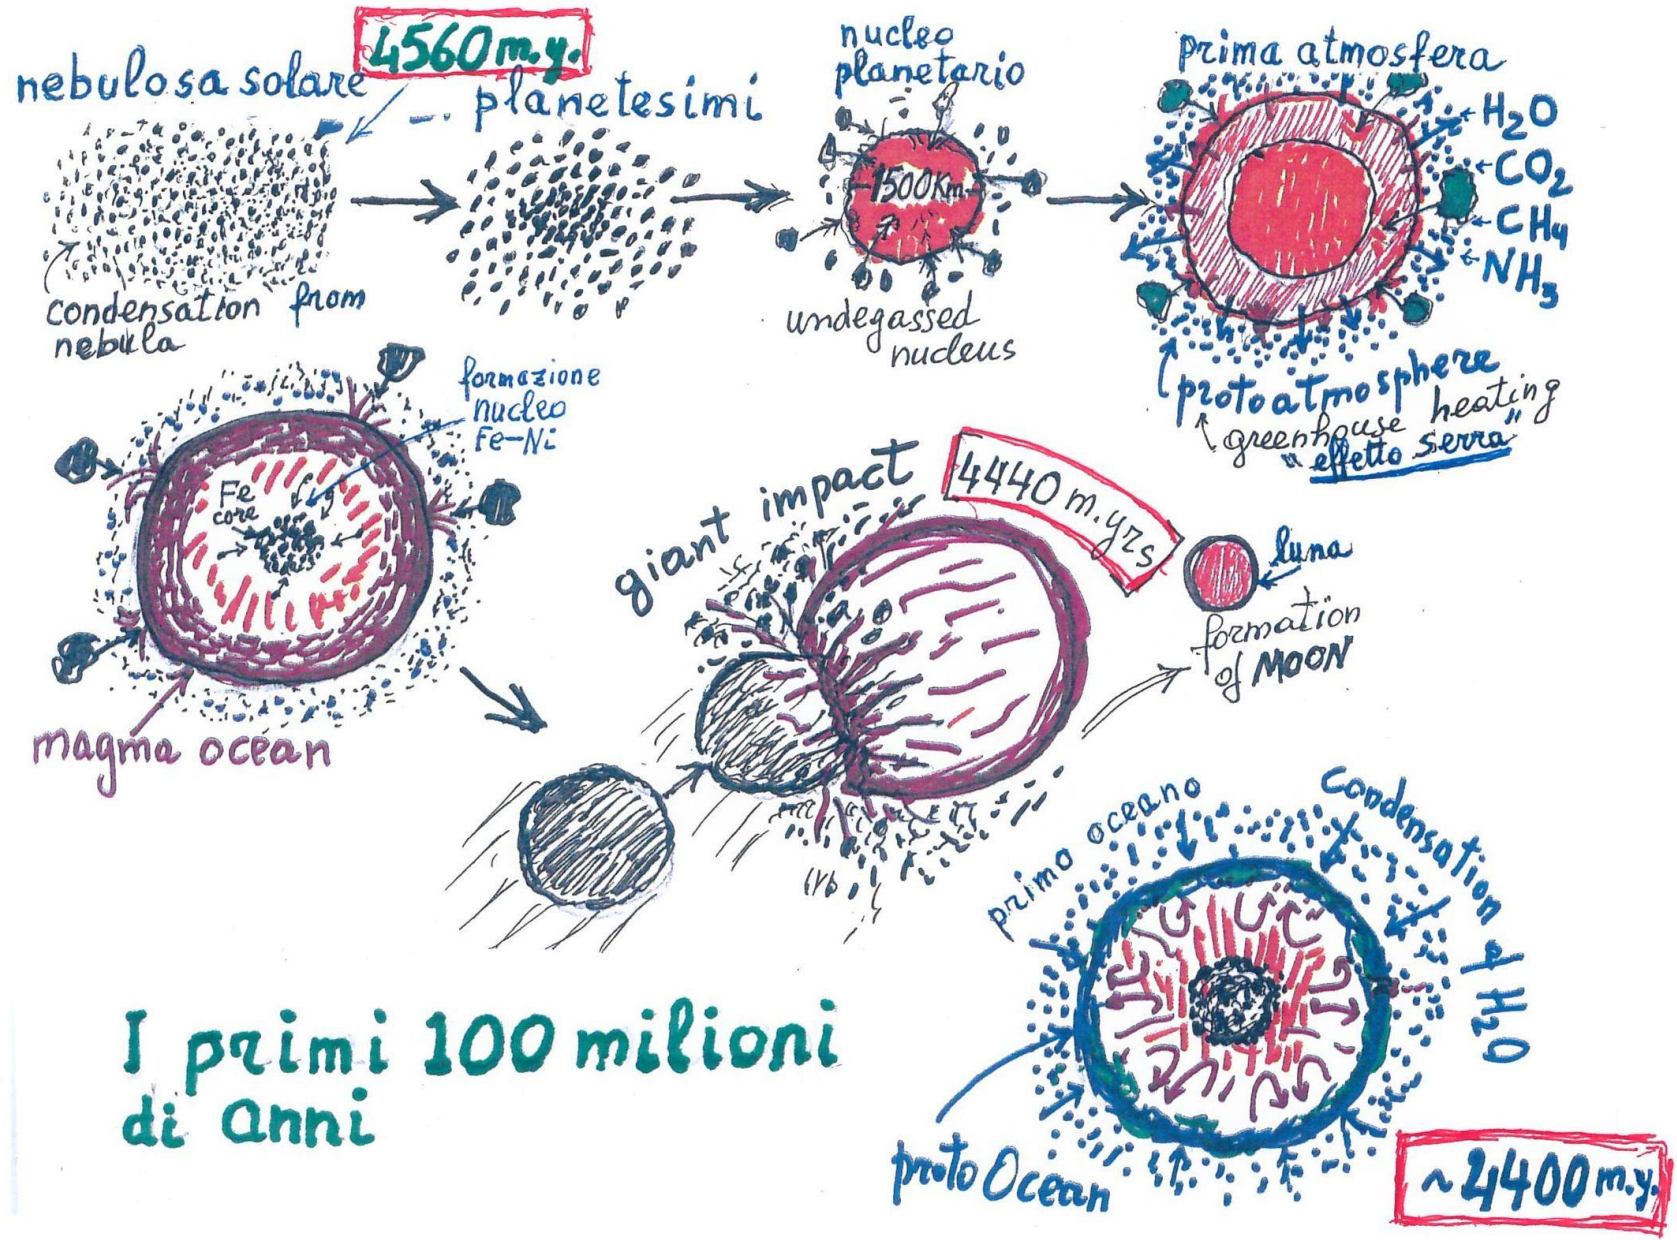 4560 m.y.
nebulosa solare
planetesimi
nucleo
planetario
prima atmosfera
H₂O
CO₂
CH₄
NH₃
1500 Km
condensation from
nebula
undegassed
nucleus
protoatmosphere
greenhouse heating
"effetto serra"
formazione
nucleo
Fe-Ni
Fe
core
magma ocean
giant impact
4440 m.yrs
luna
formation
of MOON
primo oceano
Condensation of H₂O
I primi 100 milioni
di anni
proto Ocean
~4400 m.y.